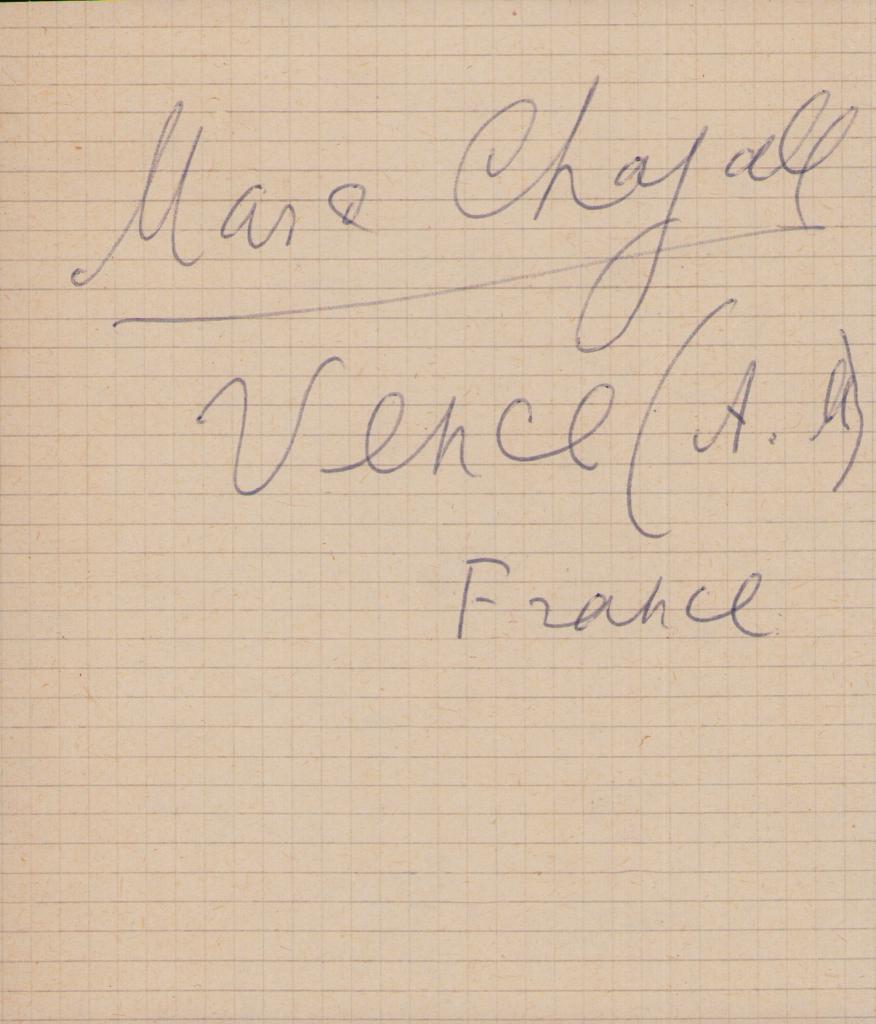 Marc Chagall
Vence (A. M)
France